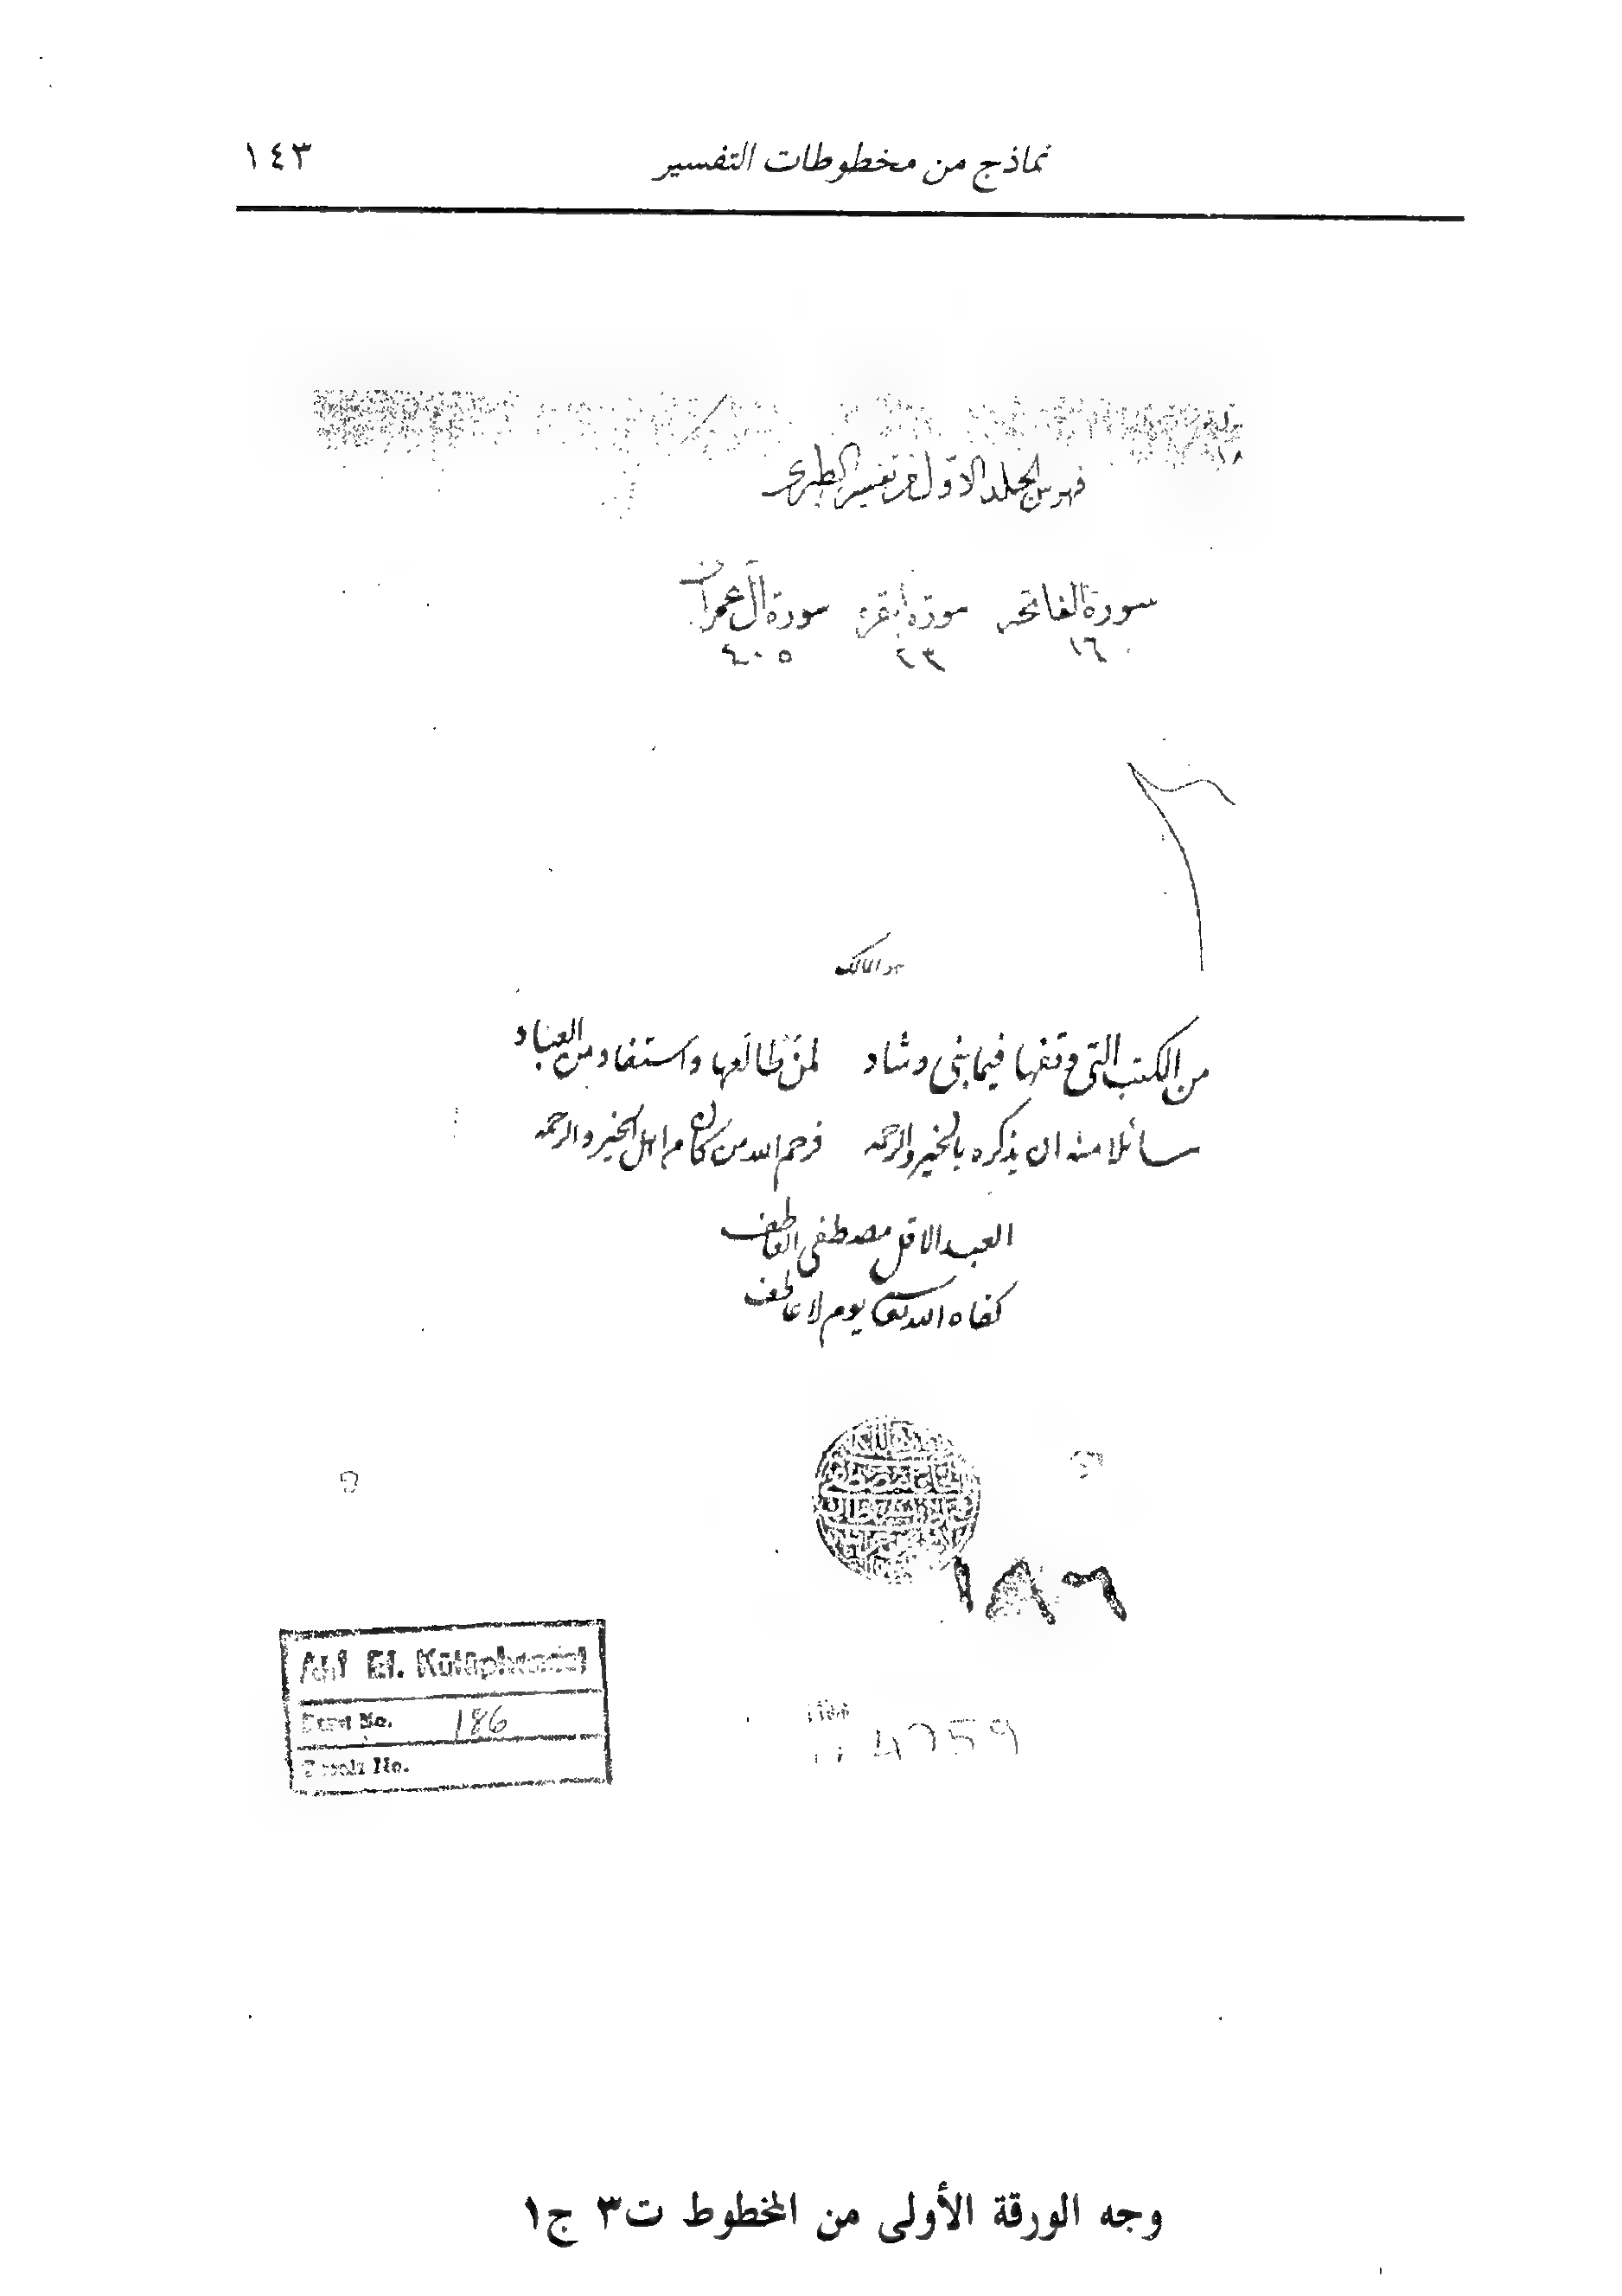 نماذج من مخطوطات التفسير ١٤٣
فهرس الجلد الاول من تفسير الطبرى
سورة الفاتحه سورة البقره سورة آل عمران
١٦ ٢٣ ٤٠٥
هو المالك
من الكتب التى وقفها فيما بنى وشاد لمن طالعها واستفاد من العباد
سائلا منه ان يذكره بالخير والرحمه فرحم الله من كان من اهل الخير والرحمه
العبد الاقل مصطفى العاطف
كفاه الله تعالى يوم لا عاطف
١٨٦
Atıf Ef. Kütüphanesi
No. 186
No.
4759
وجه الورقة الأولى من المخطوط ت٣ ج١